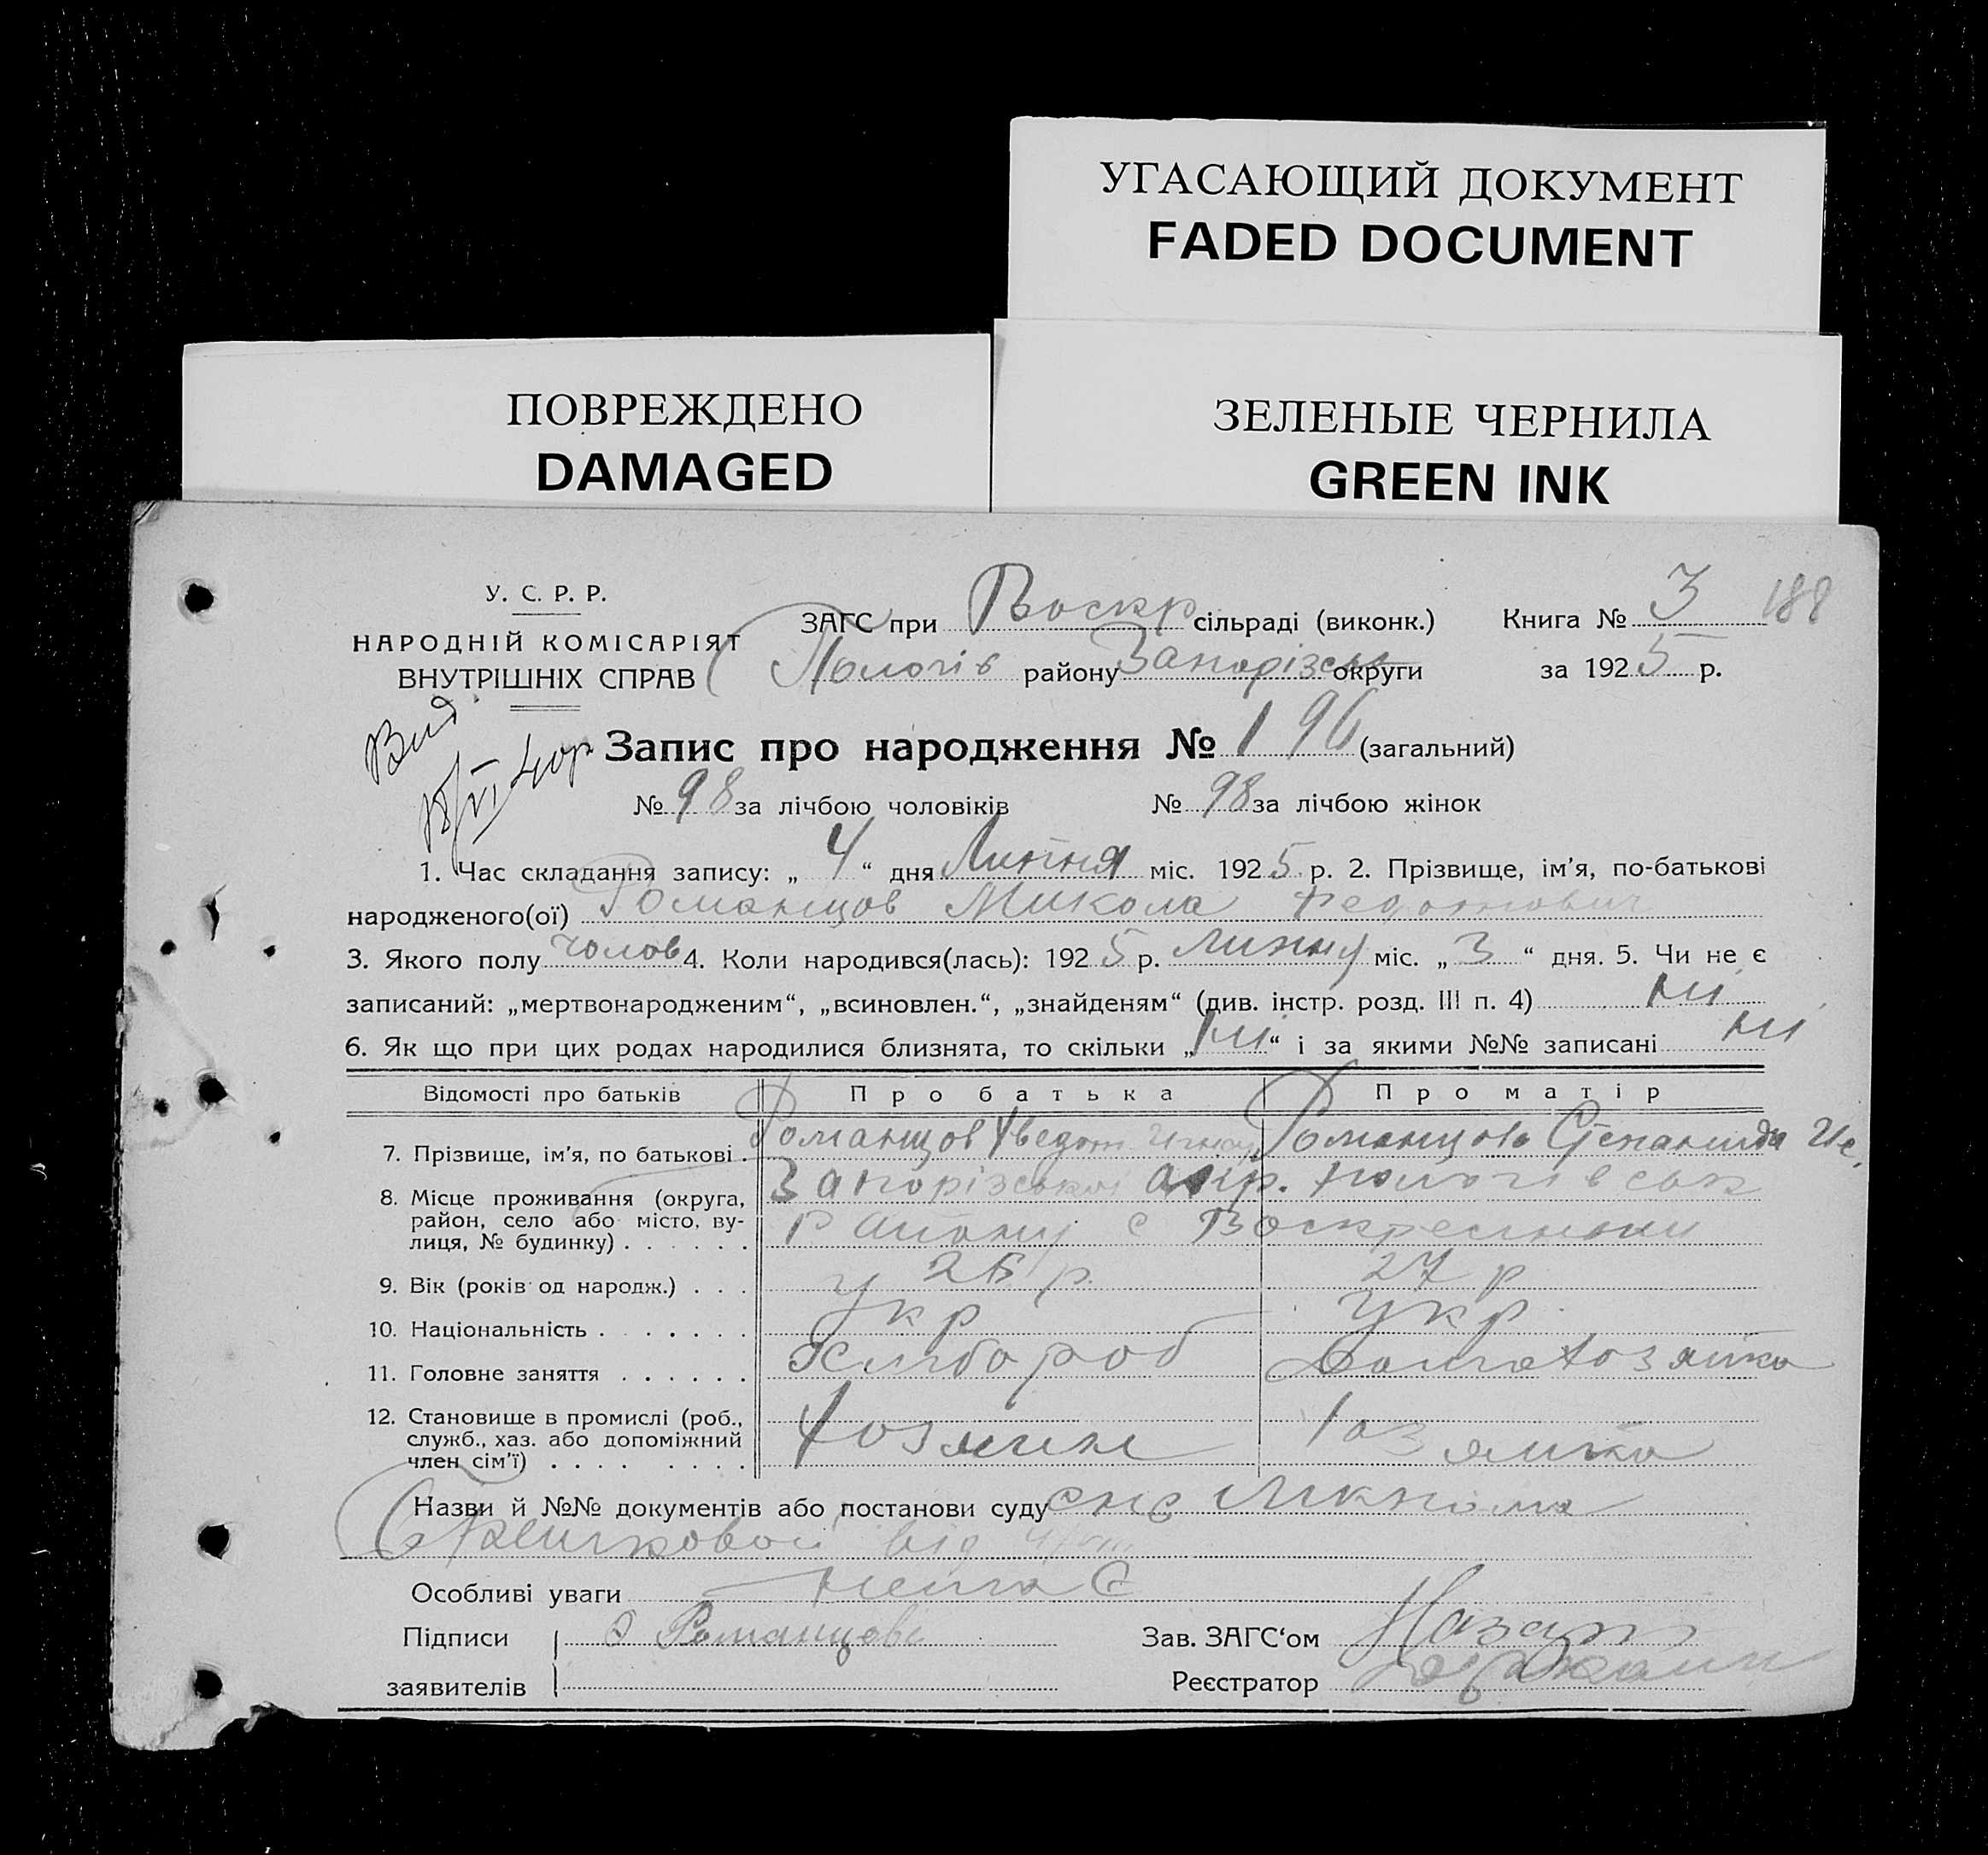 УГАСАЮЩИЙ ДОКУМЕНТ
FADED DOCUMENT
ПОВРЕЖДЕНО
DAMAGED
ЗЕЛЕНЫЕ ЧЕРНИЛА
GREEN INK
У. С. Р. Р.
НАРОДНІЙ КОМІСАРІЯТ
ВНУТРІШНІХ СПРАВ
ЗАГС при Воскр сільраді (виконк.) Книга № 3 188
Пологів району Запорізськ округи за 1925 р.
Вид
Запис про народження № 196 (загальний)
№ 98 за лічбою чоловіків № 98 за лічбою жінок
1. Час складання запису: „ 4 “ дня Липня міс. 1925 р. 2. Прізвище, ім’я, по-батькові
народженого(ої) Романцов Микола Федотович
3. Якого полу чолов 4. Коли народився(лась): 1925 р. міс. „ 3 “ дня. 5. Чи не є
записаний: „мертвонародженим“, „всиновлен.“, „знайденям“ (див. інстр. розд. III п. 4) Ні
6. Як що при цих родах народилися близнята, то скільки „ Ні “ і за якими №№ записані Ні
Відомості про батьків Про батька Про матір
7. Прізвище, ім’я, по батькові . Романцов Хведот Романцова Степанида
8. Місце проживання (округа, район, село або місто, вулиця, № будинку) . . . . . . Запорізської окр. Пологівськ
Району с Воскресінки
9. Вік (років од народж.) . . . 26 р. 27 р
10. Національність . . . . . . . Укр Укр.
11. Головне заняття . . . . . . Хлибороб Домахозяйка
12. Становище в промислі (роб., служб., хаз. або допоміжний член сім’ї) . . . . . . . . Хозяин Хозяйка
Назви й №№ документів або постанови суду
від
Особливі уваги Нема Є
Підписи Романцов Зав. ЗАГС‘ом
заявителів Реєстратор